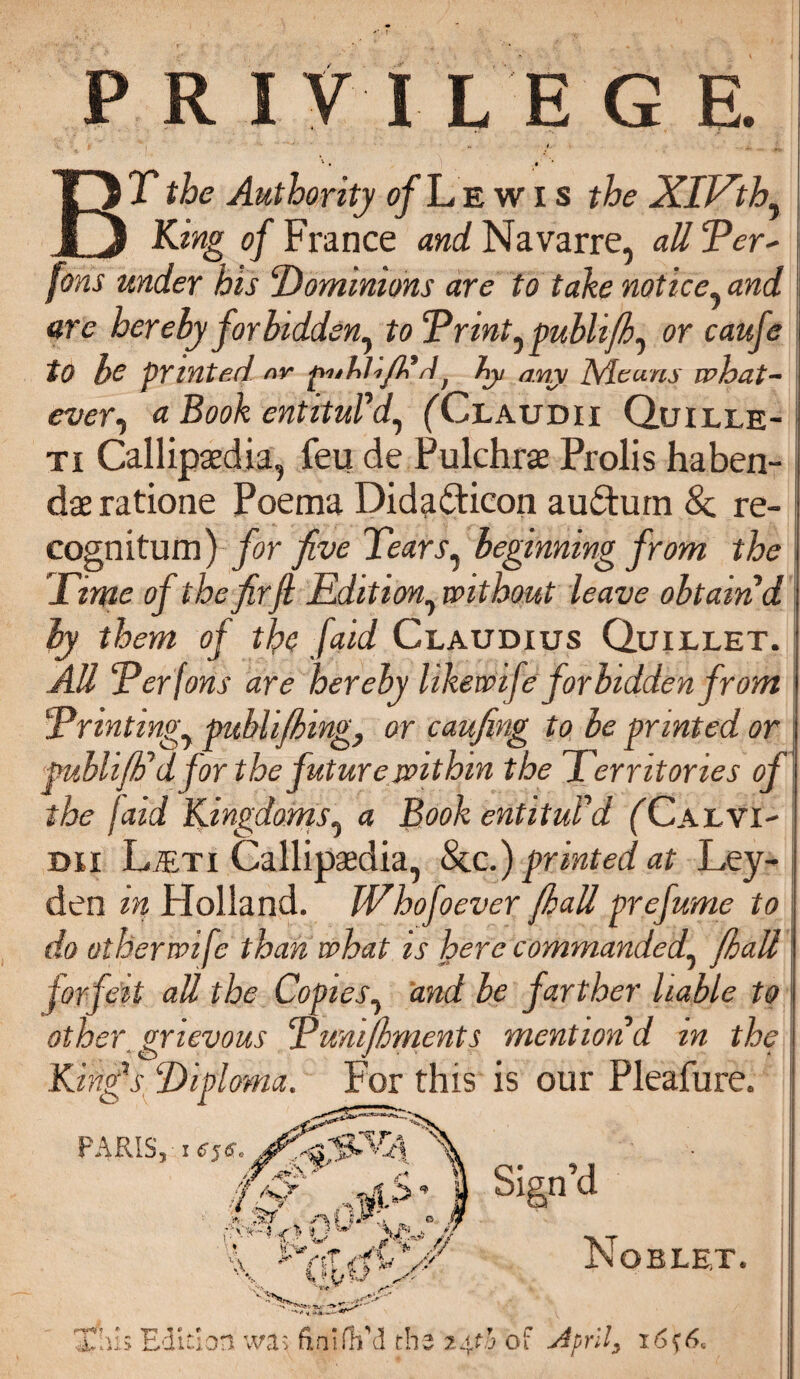 PRIVILEGE.
BY the Authority of LEWIS the XIVth,
King of France and Navarre, all Per-
ſons under his Dominions are to take notice, and
are hereby forbidden, to Print, publiſh, or cauſe
to be printed or publiſh'd, by any Means what-
ever, a Book entitul'd, (CLAUDII QUILLE-
TI Callipædia, ſeu de Pulchræ Prolis haben-
dæ ratione Poema Didacticon auctum & re-
cognitum) for five Years, beginning from the
Time of the firſt Edition, without leave obtain'd
by them of the ſaid CLAUDIUS QUILLET.
All Perſons are hereby likewiſe forbidden from
Printing, publiſhing, or cauſing to be printed or
publiſh'd for the future within the Territories of
the ſaid Kingdoms, a Book entitul'd (CALVI-
DII LÆTI Callipædia, &c.) printed at Ley-
den in Holland. Whoſoever ſhall preſume to
do otherwiſe than what is here commanded, ſhall
forfeit all the Copies, and be farther liable to
other grievous Puniſhments mention'd in the
King's Diploma. For this is our Pleaſure.
PARIS, 1656.
Sign'd
NOBLET.
This Edition was finiſh'd the 24th of April, 1656.